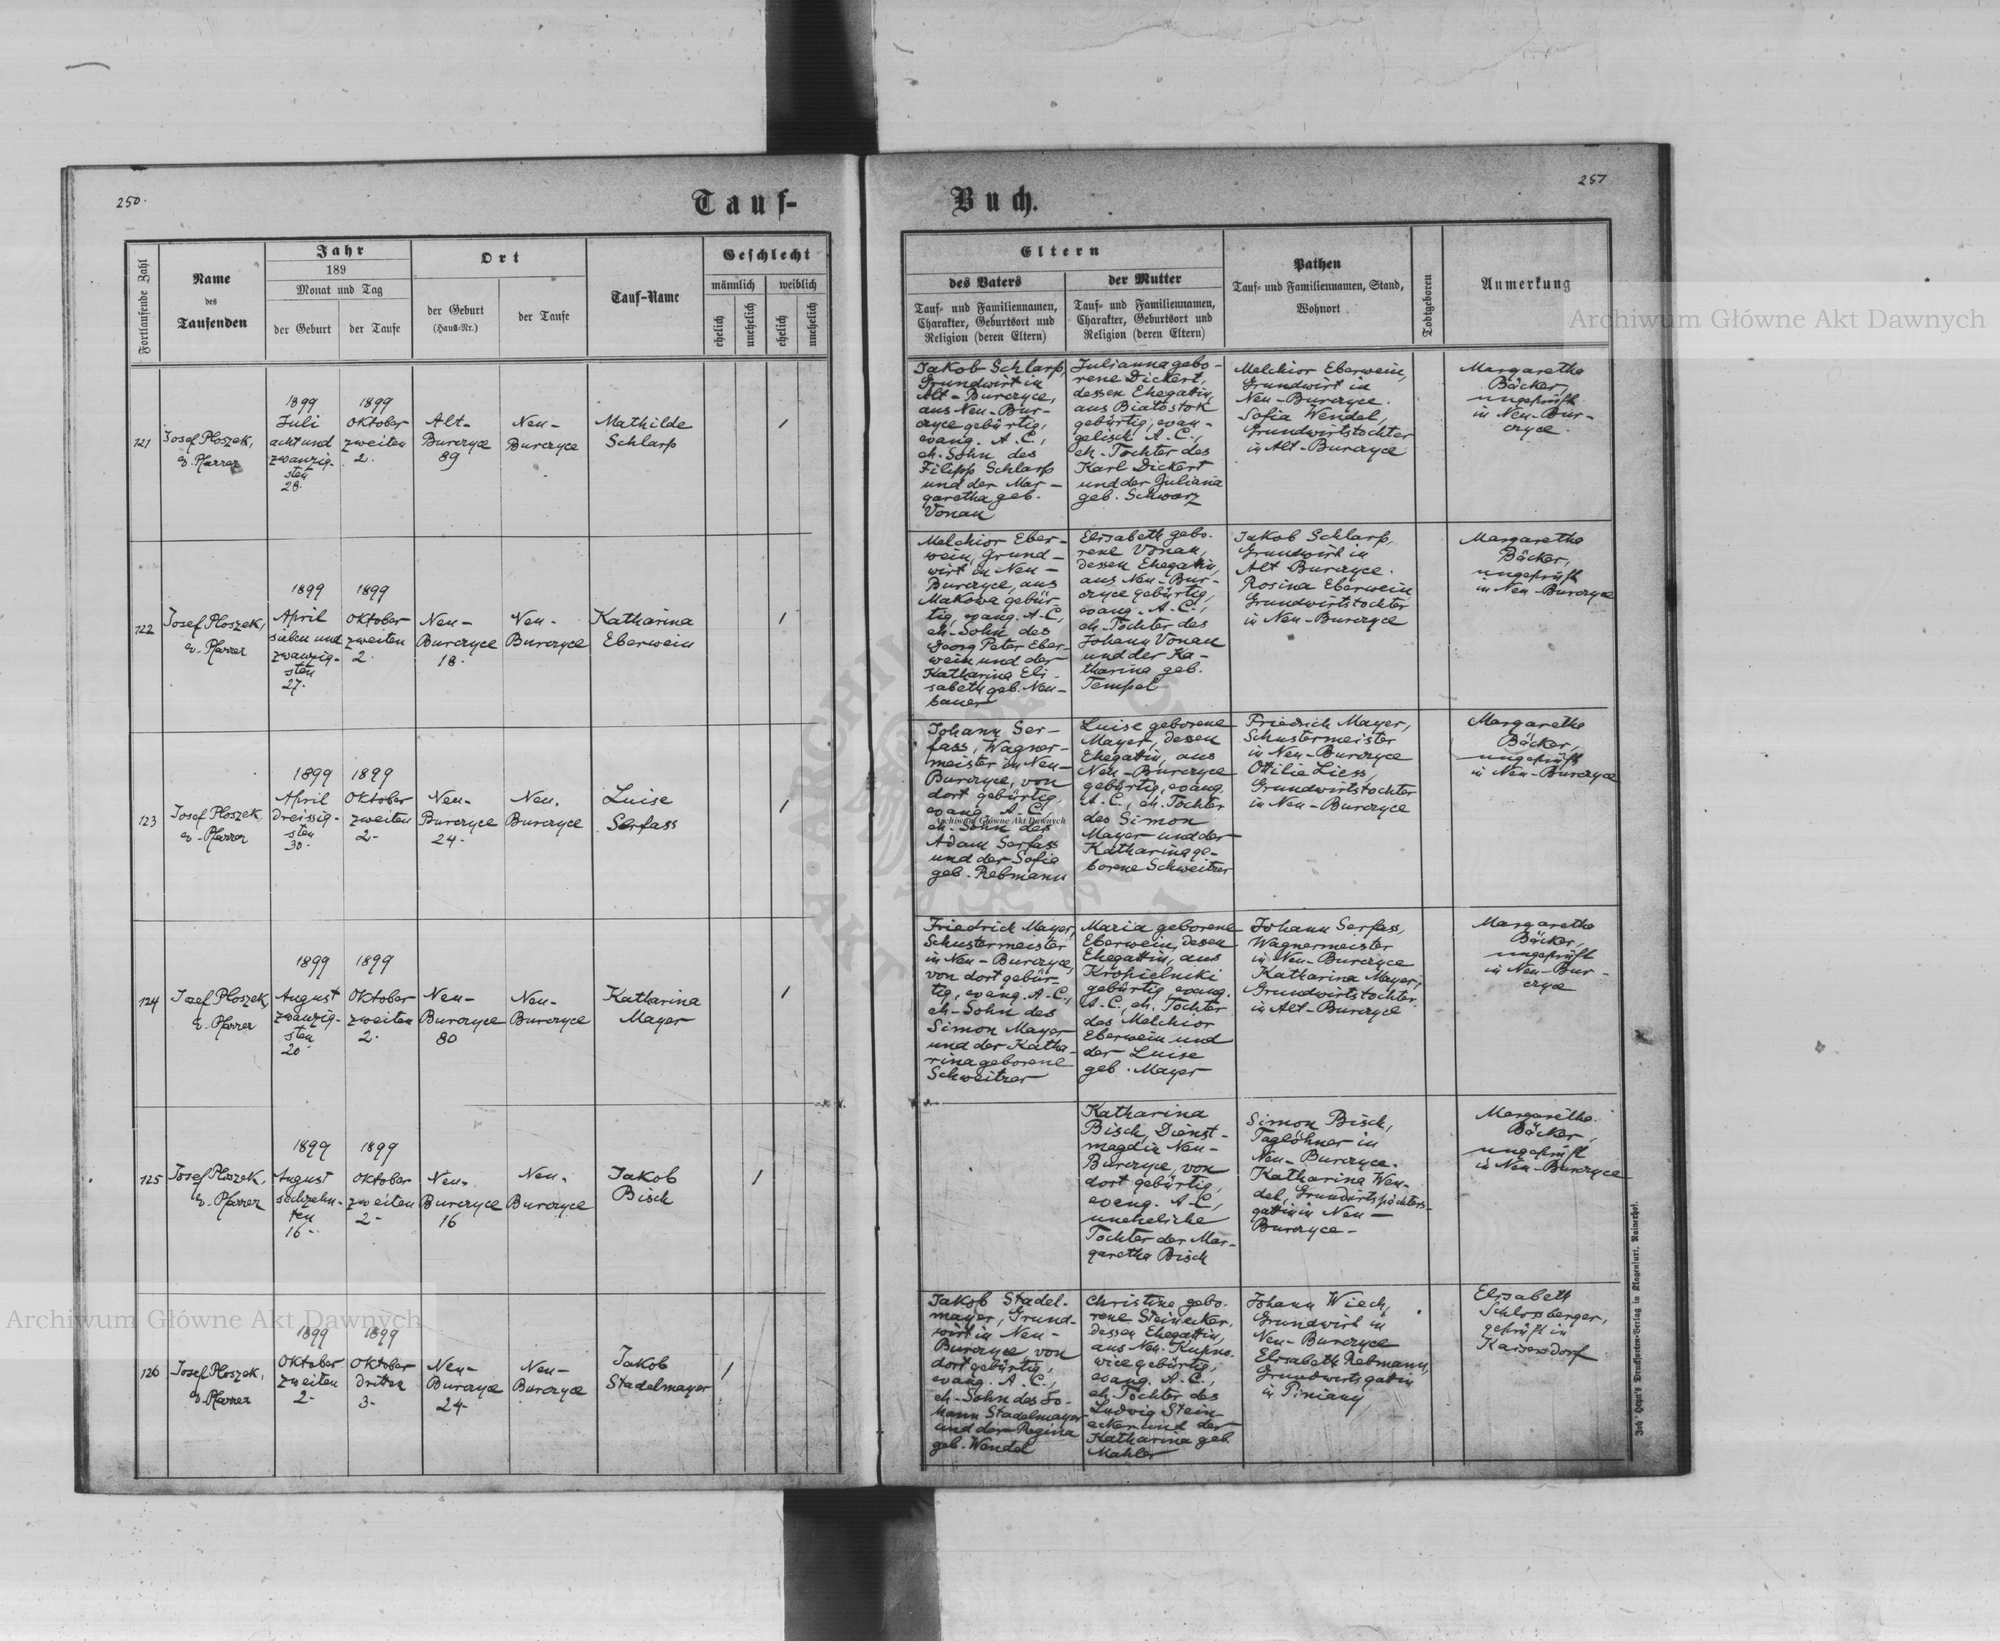 250.
Tauf-
Fortlaufende Zahl
Name
des
Taufenden
Jahr
189
Monat und Tag
der Geburt
der Taufe
Ort
der Geburt
(Hauß-Nr.)
der Taufe
Tauf-Name
Geschlecht
männlich
weiblich
ehelich
unehelich
ehelich
unehelich
121
Josef Ploszek,
e. Pfarrer
1899
Juli
acht und
zwanzig-
sten
28.
1899
Oktober
zweiten
2.
Alt-
Burczyce
89
Neu-
Burczyce
Mathilde
Schlarp
1
122
Josef Ploszek,
e. Pfarrer
1899
April
sieben und
zwanzig-
sten
27.
1899
Oktober
zweiten
2.
Neu-
Burczyce
18.
Neu-
Burczyce
Katharina
Eberwein
1
123
Josef Ploszek
e. Pfarrer
1899
April
dreissig-
sten
30.
1899
Oktober
zweiten
2-
Neu-
Burczyce
24-
Neu-
Burczyce
Luise
Serfass
1
124
Josef Ploszek
e. Pfarrer
1899
August
zwanzig-
sten
20.
1899
Oktober
zweiten
2.
Neu-
Burczyce
80
Neu-
Burczyce
Katharina
Mayer
1
125
Josef Ploszek,
e. Pfarrer
1899
August
sechzehn-
ten
16-
1899
Oktober
zweiten
2-
Neu-
Burczyce
16
Neu-
Burczyce
Jakob
Bisch
1
126
Josef Ploszek,
e. Pfarrer
1899
Oktober
zweiten
2-
1899
Oktober
dritten
3-
Neu-
Burczyce
24-
Neu-
Burczyce
Jakob
Stadelmayer
1
Buch.
257
Eltern
des Vaters
Tauf- und Familiennamen,
Charakter, Geburtsort und
Religion (deren Eltern)
der Mutter
Tauf- und Familiennamen,
Charakter, Geburtsort und
Religion (deren Eltern)
Pathen
Tauf- und Familiennamen, Stand,
Wohnort
Todtgeboren
Anmerkung
Jakob Schlarp,
Grundwirt in
Alt-Burczyce,
aus Neu-Bur-
czyce gebürtig,
evang. A.C.,
eh. Sohn des
Filipp Schlarp
und der Mar-
garetha geb.
Vonau
Julianna gebo-
rene Dickert,
dessen Ehegattin,
aus Białostok
gebürtig, evan-
gelisch A.C.,
eh. Tochter des
Karl Dickert
und der Juliana
geb. Schwarz
Melchior Eberwein,
Grundwirt in
Neu-Burczyce.
Sofia Wendel,
Grundwirtstochter
in Alt-Burczyce
Margaretha
Bäcker,
ungeprüft
in Neu-Bur-
czyce.
Melchior Eber-
wein, Grund-
wirt in Neu-
Burczyce, aus
Makowa gebür-
tig, evang. A.C.,
eh. Sohn des
Georg Peter Eber-
wein und der
Katharina Eli-
sabeth geb. Neu-
bauer
Elisabeth gebo.
rene Vonau,
dessen Ehegattin,
aus Neu-Bur-
czyce gebürtig,
evang. A.C.,
eh. Tochter des
Johann Vonau
und der Ka-
tharina geb.
Tempel
Jakob Schlarp,
Grundwirt in
Alt Burczyce.
Rosina Eberwein
Grundwirtstochter
in Neu-Burczyce
Margaretha
Bäcker,
ungeprüft
in Neu-Burczyce
Johann Ser-
fass, Wagner-
meister in Neu-
Burczyce, von
dort gebürtig,
evang. A.C.,
eh. Sohn des
Adam Serfass
und der Sofie
geb. Rebmann
Luise geborene
Mayer, dessen
Ehegattin, aus
Neu-Burczyce
gebürtig, evang.
A.C., eh. Tochter
des Simon
Mayer und der
Katharina ge-
borene Schweitzer
Friedrich Mayer,
Schustermeister
in Neu-Burczyce
Ottilie Liess,
Grundwirtstochter
in Neu-Burczyce
Margaretha
Bäcker,
ungeprüft
in Neu-Burczyce
Friedrich Mayer,
Schustermeister
in Neu-Burczyce,
von dort gebür-
tig, evang. A.C.,
eh. Sohn des
Simon Mayer
und der Katha-
rina geborene
Schweitzer
Maria geborene
Eberwein, dessen
Ehegattin, aus
Kropielniki
gebürtig, evang.
A.C., eh. Tochter
des Melchior
Eberwein und
der Luise
geb. Mayer
Johann Serfass,
Wagnermeister
in Neu-Burczyce
Katharina Mayer,
Grundwirtstochter
in Alt-Burczyce
Margaretha
Bäcker,
ungeprüft
in Neu-Bur-
czyce
Katharina
Bisch, Dienst-
magd in Neu-
Burczyce, von
dort gebürtig,
evang. A.C.,
uneheliche
Tochter der Mar-
garetha Bisch
Simon Bisch,
Taglöhner in
Neu-Burczyce.
Katharina Wen-
del, Grundwirtspächters-
gattin in Neu-
Burczyce-
Margaretha
Bäcker,
ungeprüft
in Neu-Burczyce
Jakob Stadel-
mayer, Grund-
wirt in Neu-
Burczyce, von
dort gebürtig,
evang. A.C.,
eh. Sohn des Jo-
hann Stadelmayer
und der Regina
geb. Wendel
Christine gebo-
rene Steinecker,
dessen Ehegattin,
aus Neu-Kupno-
wice gebürtig,
evang. A.C.,
eh. Tochter des
Ludwig Stein-
ecker und der
Katharina geb.
Mahler
Johann Wiech,
Grundwirt in
Neu-Burczyce
Elisabeth Rebmann,
Grundwirtsgattin
in Piniany
Elisabeth
Schlossberger,
geprüft in
Kaisersdorf
Joh. Heyn's Drucksorten-Verlag in Klagenfurt, Rainerhof.
Archiwum Główne Akt Dawnych
Archiwum Główne Akt Dawnych
Archiwum Główne Akt Dawnych